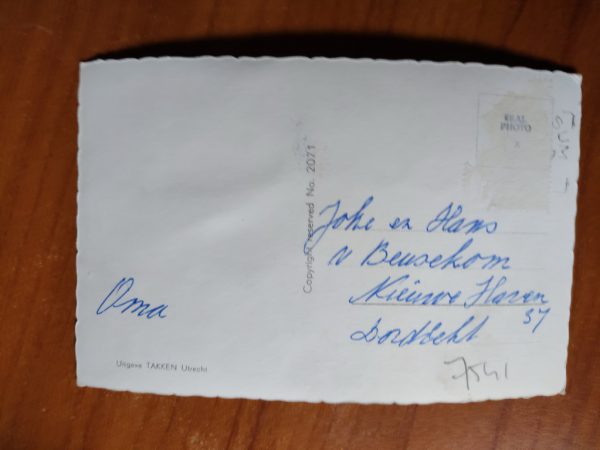 Oma
Uitgave TAKKEN Utrecht
Copyright reserved No. 2071
REAL
PHOTO
x
Joke en Hans
v Beusekom
Nieuwe Haven
37
Dordrecht
7541